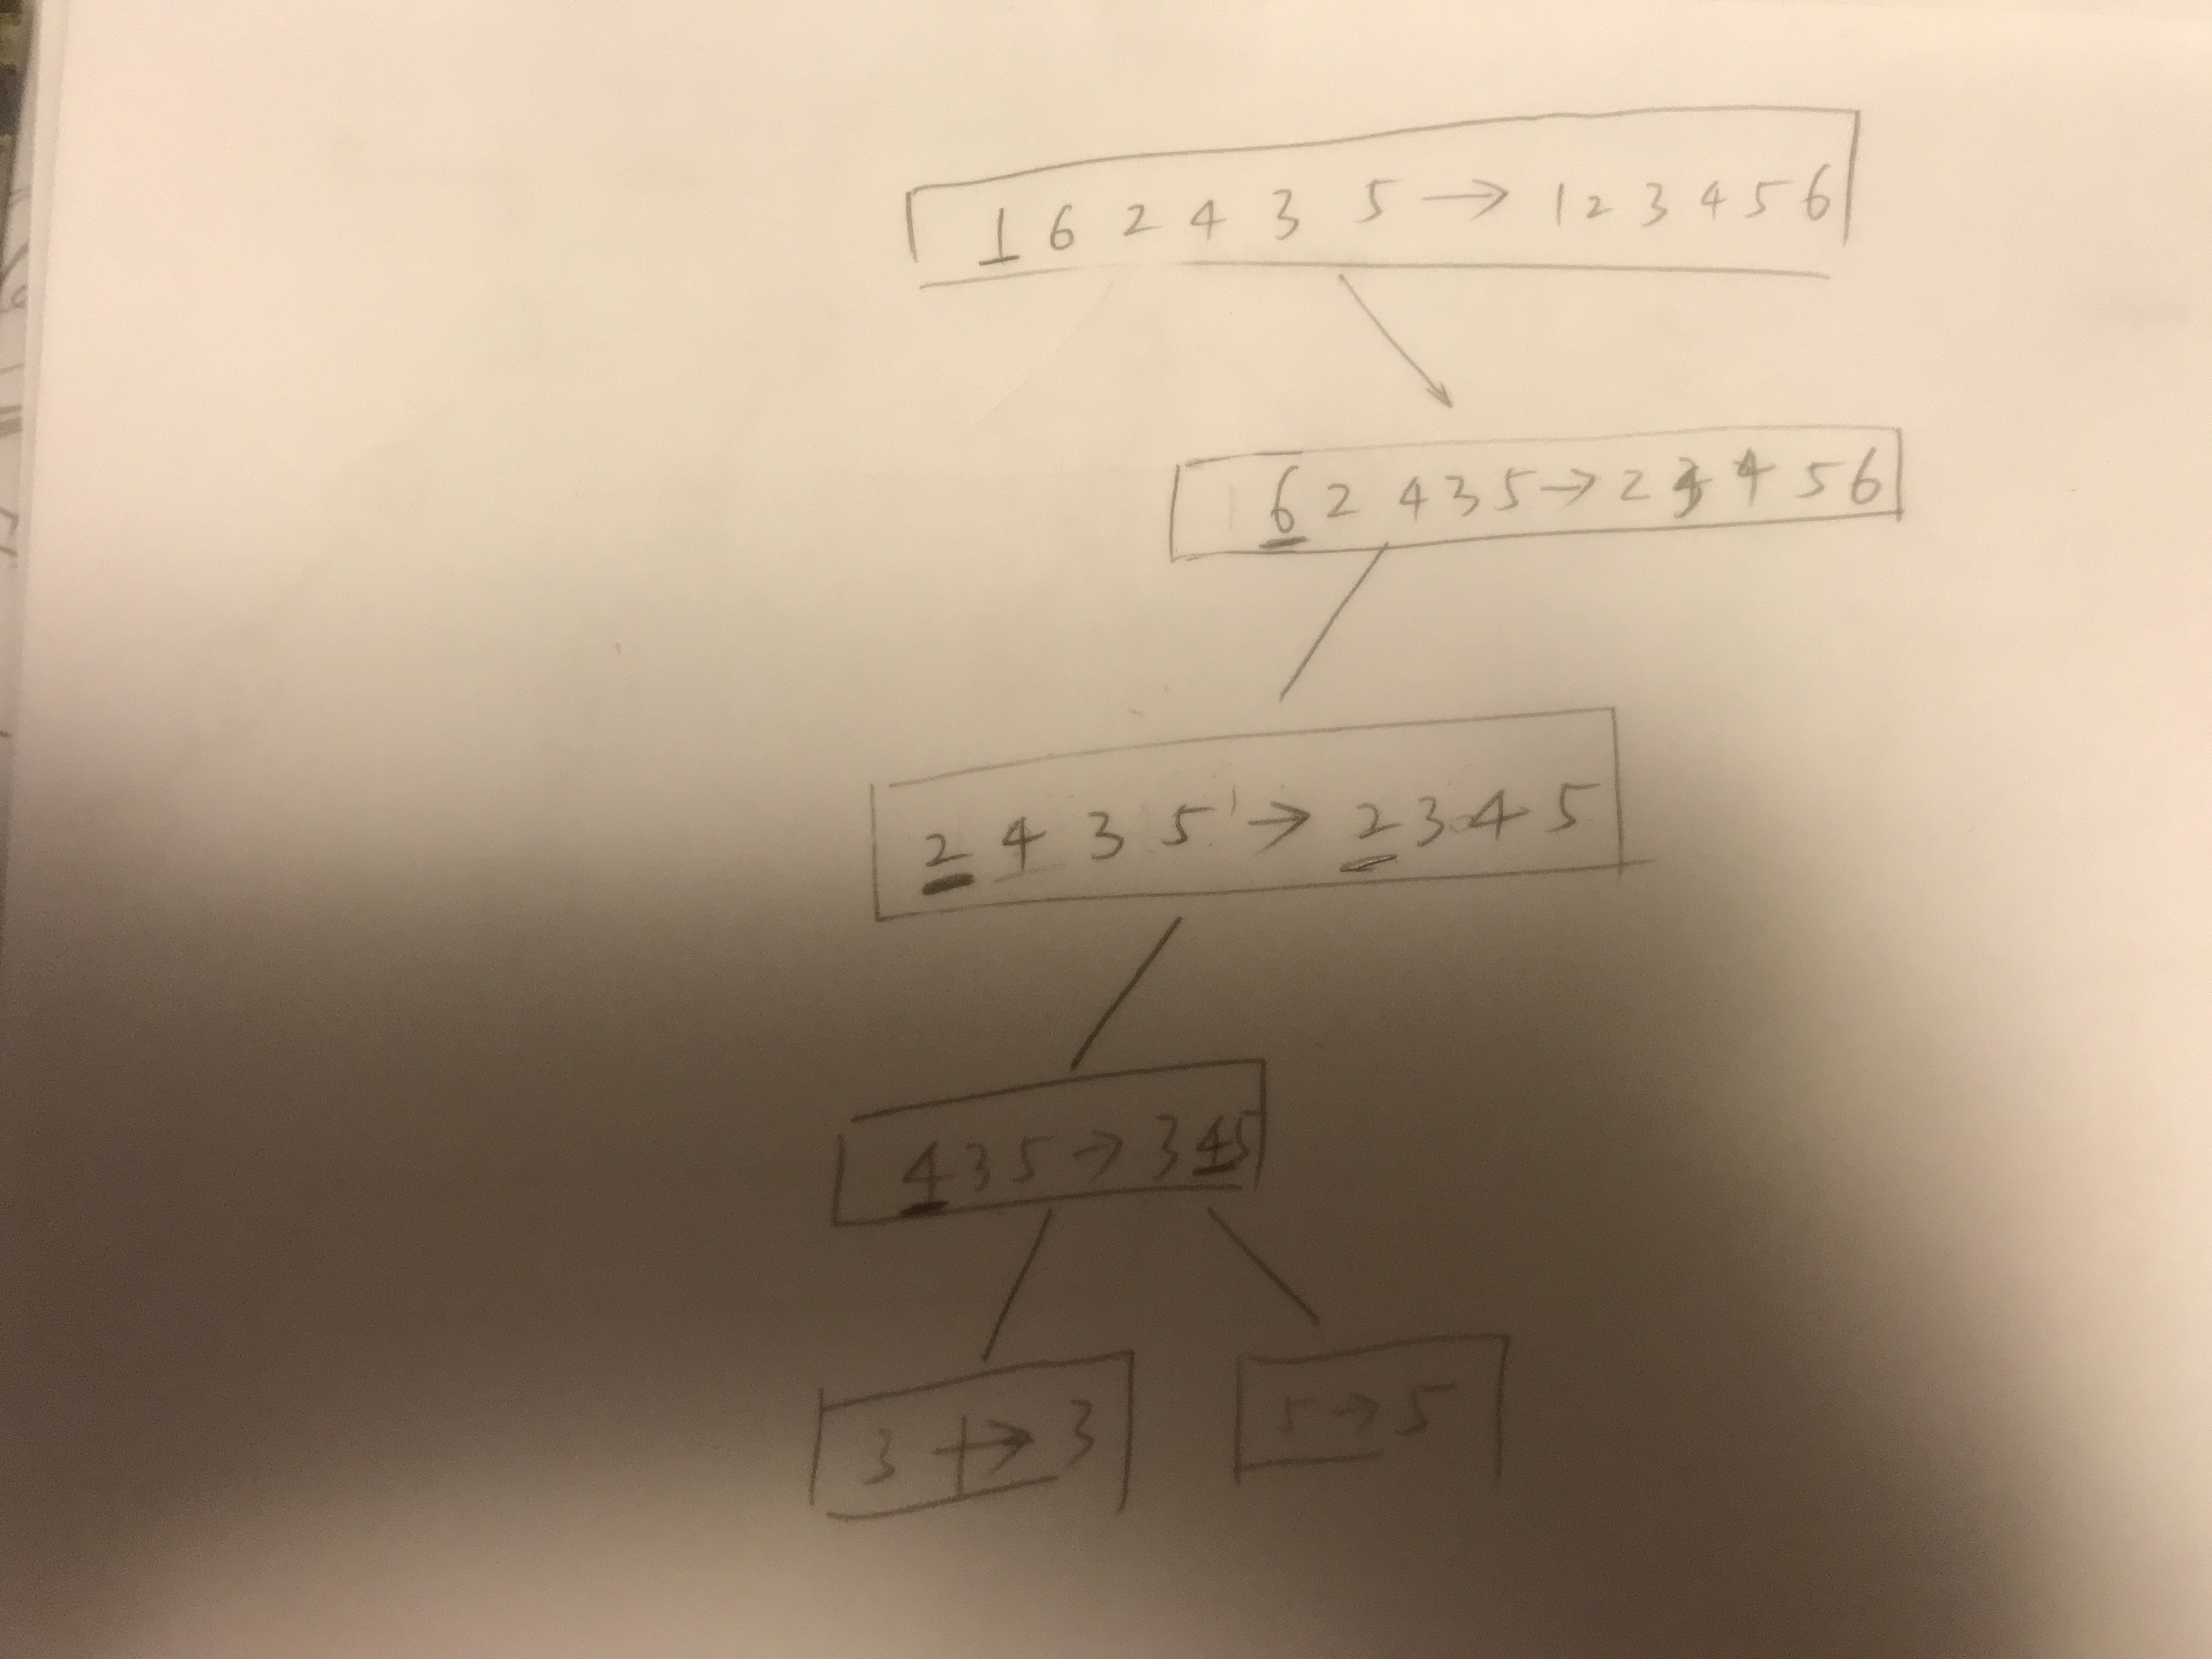 1 6 2 4 3 5 → 1 2 3 4 5 6
6 2 4 3 5 → 2 3 4 5 6
2 4 3 5 → 2 3 4 5
4 3 5 → 3 4 5
3 → 3
5 → 5